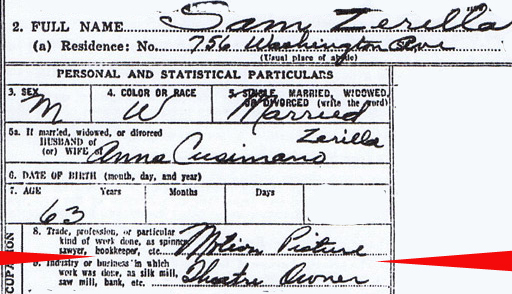 2. FULL NAME Sam Zerilla
(a) Residence: No. 756 Washington Ave
(Usual place of abode)
PERSONAL AND STATISTICAL PARTICULARS
3. SEX 4. COLOR OR RACE 5. SINGLE, MARRIED, WIDOWED,
OR DIVORCED (write the word)
M W Married
5a. If married, widowed, or divorced
HUSBAND of
(or) WIFE of Anna Cusimano Zerilla
6. DATE OF BIRTH (month, day, and year)
7. AGE Years Months Days
63
8. Trade, profession, or particular
kind of work done, as spinner,
sawyer, bookkeeper, etc. Motion Picture
9. Industry or business in which
work was done, as silk mill,
saw mill, bank, etc. Theatre Owner